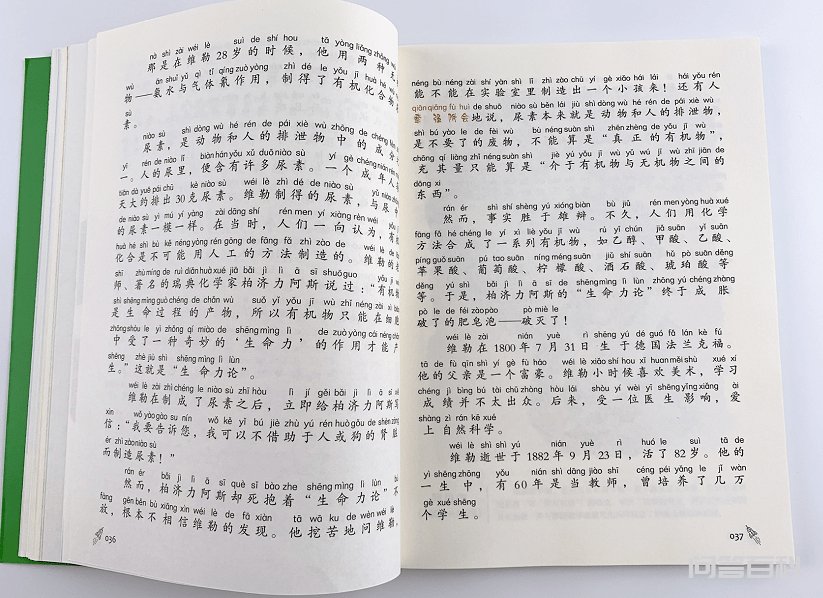 nà shì zài wéi lè suì de shí hou tā yòng liǎng zhǒng
那是在维勒28岁的时候，他用两种
wù ān shuǐ yǔ qì tǐ qíng zuò yòng zhì dé le yǒu jī huà hé
物——氨水与气体氰作用，制得了有机化合物
sù
素。
niào sù shì dòng wù hé rén de pái xiè wù zhōng de chéng
尿素，是动物和人的排泄物中的成
yī rén de niào lǐ biàn hán yǒu xǔ duō niào sù yí gè chéng nián rén
一。人的尿里，便含有许多尿素。一个成年人
tiān dà yuē pái chū kè niào sù wéi lè zhì dé de niào sù yǔ niào
天大约排出30克尿素。维勒制得的尿素，与尿中
de niào sù yì mú yí yàng zài dāng shí rén men yí xiàng rèn wéi yǒu
的尿素一模一样。在当时，人们一向认为，有机
huà hé shì bù kě néng yòng rén gōng de fāng fǎ zhì zào de wéi lè de
化合是不可能用人工的方法制造的。维勒的老
shī zhù míng de ruì diǎn huà xué jiā bǎi jì lì ā sī shuō guo yǒu jī
师、著名的瑞典化学家柏济力阿斯说过：“有机
shì shēng mìng guò chéng de chǎn wù suǒ yǐ yǒu jī wù zhǐ néng zài xì
是生命过程的产物，所以有机物只能在细胞
zhōng shòu le yì zhǒng qí miào de shēng mìng lì de zuò yòng cái néng chǎn
中受了一种奇妙的‘生命力’的作用才能产
shēng zhè jiù shì shēng mìng lì lùn
生。”这就是“生命力论”。
wéi lè zài zhì chéng le niào sù zhī hòu lì jí gěi bǎi jì lì ā sī xiě
维勒在制成了尿素之后，立即给柏济力阿斯写
xìn wǒ yào gào su nín wǒ kě yǐ bú jiè zhù yú rén huò gǒu de shèn zàng
信：“我要告诉您，我可以不借助于人或狗的肾脏
ér zhì zào niào sù
而制造尿素！”
rán ér bǎi jì lì ā sī què sǐ bào zhe shēng mìng lì lùn
然而，柏济力阿斯却死抱着“生命力论”不
fàng gēn běn bù xiāng xìn wéi lè de fā xiàn tā wā ku de wèn wéi lè
放，根本不相信维勒的发现。他挖苦地问维勒，
036
néng bù néng zài shí yàn shì lǐ zhì zào chū yí gè xiǎo hái lái hái yǒu rén
能不能在实验室里制造出一个小孩来！还有人
qiān qiǎng fù huì de shuō niào sù běn lái jiù shì dòng wù hé rén de pái xiè wù
牵强附会地说，尿素本来就是动物和人的排泄物，
shì bú yào le de fèi wù bù néng suàn shì zhēn zhèng de yǒu jī wù
是不要了的废物，不能算是“真正的有机物”，
chōng qí liàng zhǐ néng suàn shì jiè yú yǒu jī wù yǔ wú jī wù zhī jiān de
充其量只能算是“介于有机物与无机物之间的
dōng xi
东西”。
rán ér shì shí shèng yú xióng biàn bù jiǔ rén men yòng huà xué
然而，事实胜于雄辩。不久，人们用化学
fāng fǎ hé chéng le yí xì liè yǒu jī wù rú yǐ chún jiǎ suān yǐ suān
方法合成了一系列有机物，如乙醇、甲酸、乙酸、
píng guǒ suān pú tao suān níng méng suān jiǔ shí suān hǔ pò suān děng
苹果酸、葡萄酸、柠檬酸、酒石酸、琥珀酸等
děng yú shì bǎi jì lì ā sī de shēng mìng lì lùn zhōng yú chéng zhàng
等。于是，柏济力阿斯的“生命力论”终于成胀
pò le de féi zào pào pò miè le
破了的肥皂泡——破灭了！
wéi lè zài nián yuè rì shēng yú dé guó fǎ lán kè fú
维勒在1800年7月31日生于德国法兰克福。
tā de fù qīn shì yí gè fù háo wéi lè xiǎo shí hou xǐ huan měi shù xué xí
他的父亲是一个富豪。维勒小时候喜欢美术，学习
chéng jì bìng bú tài chū zhòng hòu lái shòu yí wèi yī shēng yǐng xiǎng ài
成绩并不太出众。后来，受一位医生影响，爱
shàng zì rán kē xué
上自然科学。
wéi lè shì shì yú nián yuè rì huó le suì tā de
维勒逝世于1882年9月23日，活了82岁。他的
yì shēng zhōng yǒu nián shì dāng jiào shī céng péi yǎng le jǐ wàn
一生中，有60年是当教师，曾培养了几万
gè xué shēng
个学生。
037
问答百科